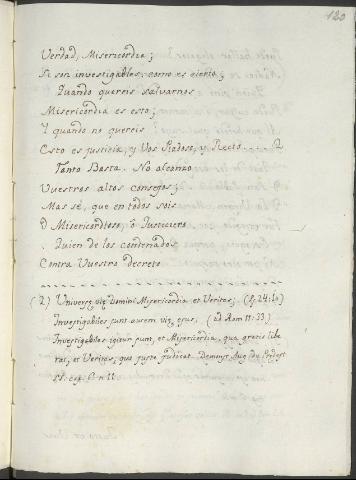 120
Verdad, Misericordia;
Si son investigables, como es cierto,
Quando quereis salvarnos
Misericordia es esto;
Y quando no quereis
Esto es justicia, y Vos Piadoso, y Recto.....2
Tanto Basta. No alcanzo
Vuestros altos consejos;
Mas sé, que en todos sois
O Misericordioso, ò Justiciero
Quien de los condenados
Contra Vuestro decreto
(2) Universę vię Domini Misericordia et Veritas; (Ps. 24:10)
Investigabiles sunt autem vię ejus; (ad Rom 11:33)
Investigabiles igitur sunt, et Misericordia, qua gratis libe
rat, et Veritas, qua juste judicat. Aug de
cap. n 11